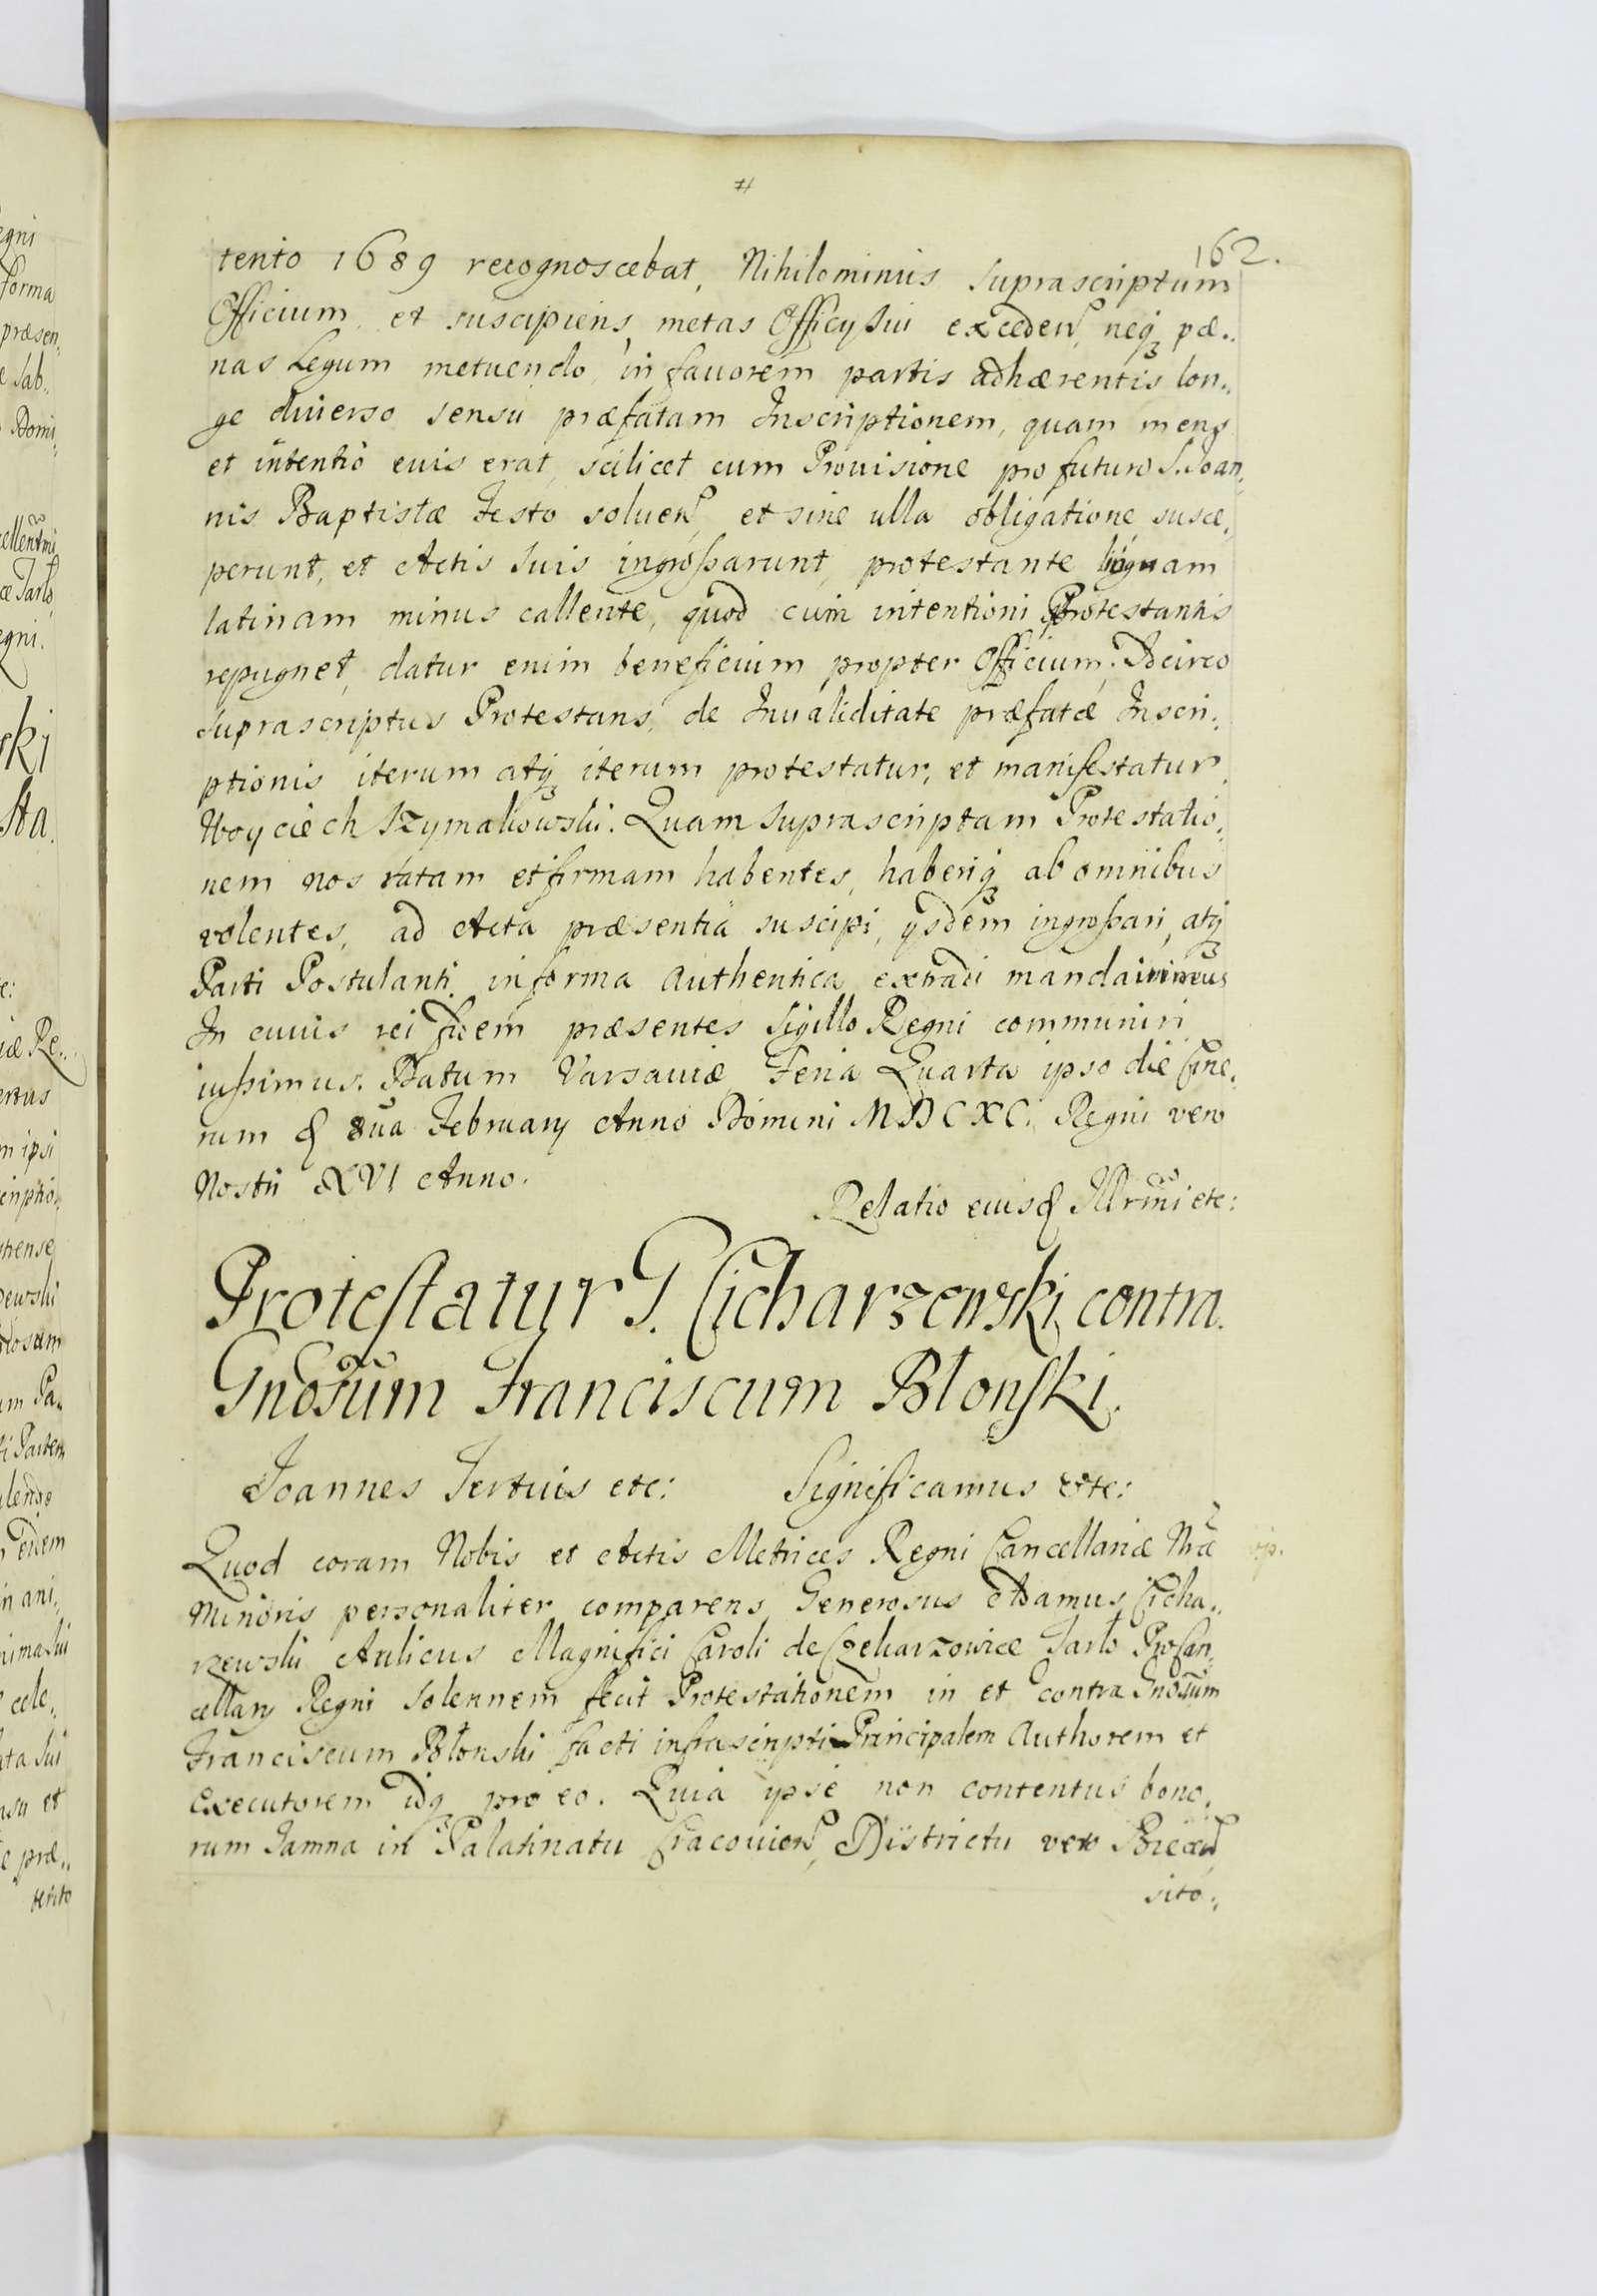 162.
tento 1689 recognoscebat, Nihilominus suprascriptum
Officium et suscipiens metas Officÿ sui exceden neq pæ..
nas Legum metuendo in fauorem partis adhærentis lon:
ge diuerso sensu præfatam Inscriptionem, quam mens
et intentio euis erat, scilicet cum Prouisione pro futuro S. Joan,
nis Baptistæ Festo soluen et sine ulla obligatione susce,
perunt, et Actis suis ingroßarunt, protestante linguam
latinam minus callente, quod cum intentioni Protestantis
repugnet, datur enim beneficium propter Officium. Idcirco
suprascriptus Protestans, de Inualiditate præfatæ Inscri,
ptionis iterum atq iterum protestatur, et manifestatur.
Woyciech Szymakowski. Quam suprascriptam Protestatio,
nem nos ratam et firmam habentes, haberiq ab omnibus
volentes, ad Acta præsentia suscipi, ÿsdem ingroßari, atq
Parti Postulanti in forma Authentica extradi mandauimus
In cuius rei fidem præsentes Sigillo Regni communiri
iußimus. Datum Varsauiæ Feria Quarta ipso die Cine,
rum d 8ua Februarÿ Anno Domini MDCXC. Regni vero
Nostri XVI Anno.
Relatio eiusd Illrmi etc:
Protestatur G. Cicharzewski contra
Gnosum Franciscum Błonski.
Joannes Tertius etc: Significamus etc:
Quod coram Nobis et Actis Metrices Regni Cancellariæ Nræ
Minoris personaliter comparens Generosus Adamus Cicha..
rzewski Aulicus Magnifici Caroli de Czekarzowice Tarło ProCan,
cellarÿ Regni solennem fecit Protestationem in et contra Gnosum
Franciscum Błonski facti infrascripti Principalem Authorem et
Executorem idq pro eo. Quia ipse non contentus bono,
rum Jamna in Palatinatu Cracouien Districtu vero Biecen
sito:,